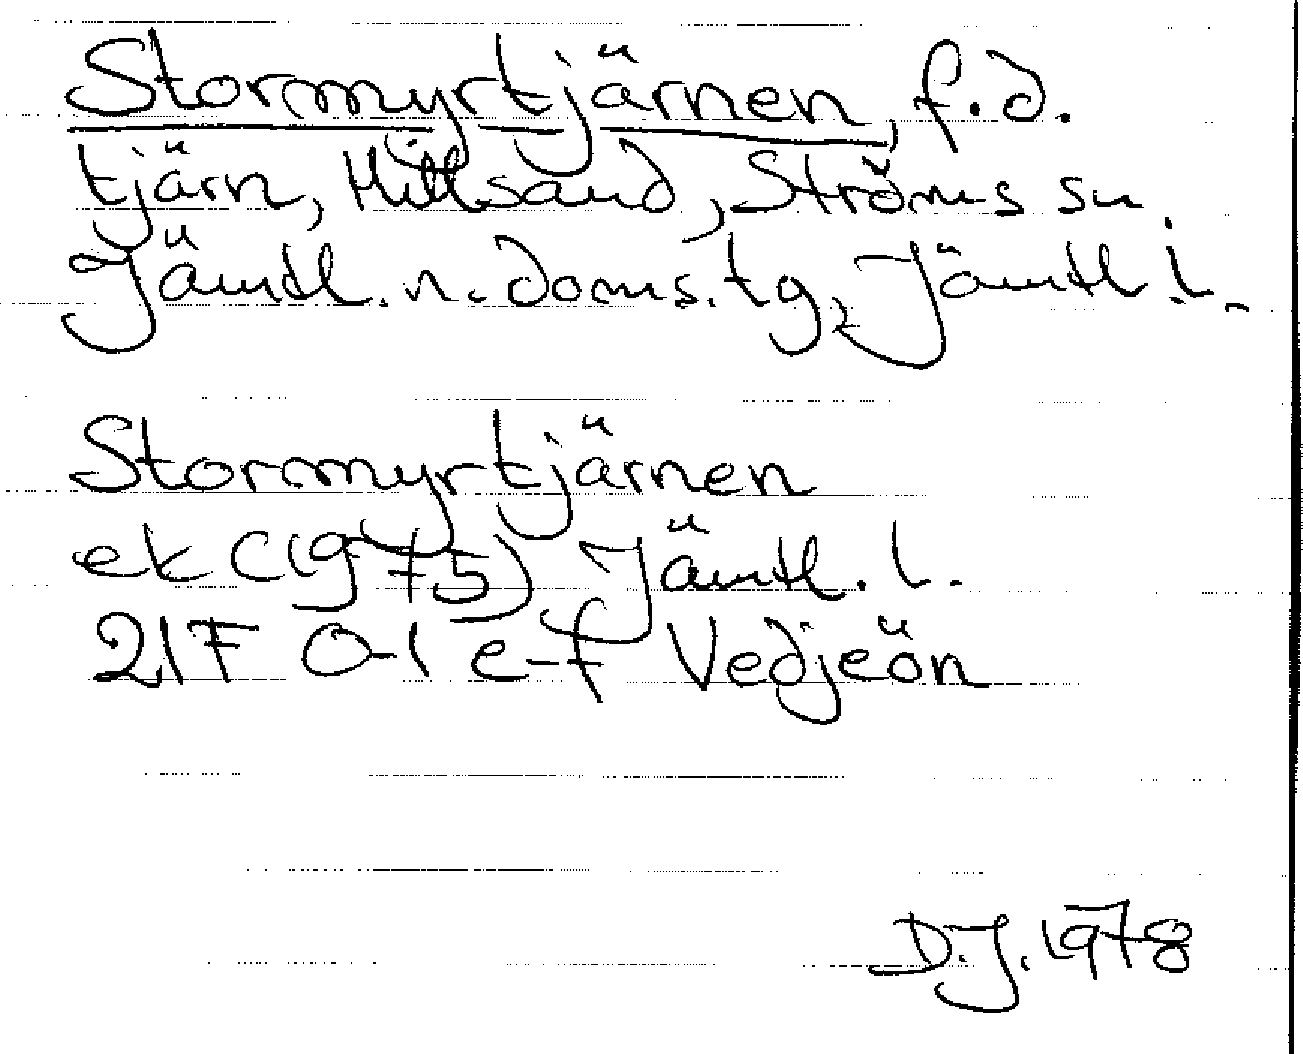 Stormyrtjärnen, f.d.
tjärn, Hillsand, Ströms sn.
Jämtl. n. doms.tg, Jämtl l.
Stormyrtjärnen
ek (1975) Jämtl. l.
21F 0-1 e-f Vedjeön
D.J. 1978